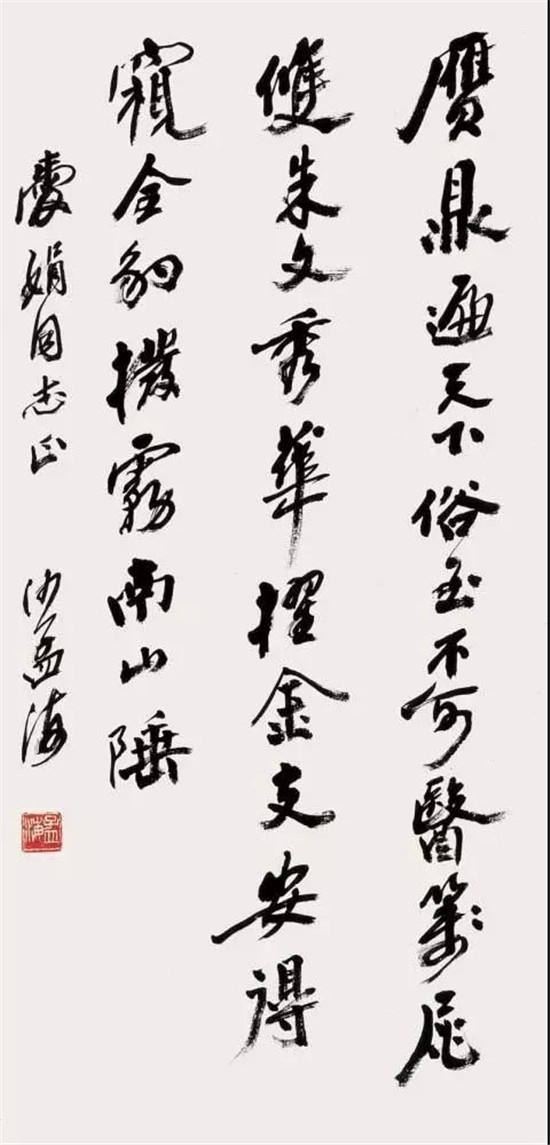 贋鼎遍天下俗不可醫箋尾
雙朱文秀華擢金支安得
窺全豹撥霧南山陲
慶娟同志正 沙孟海
孟海